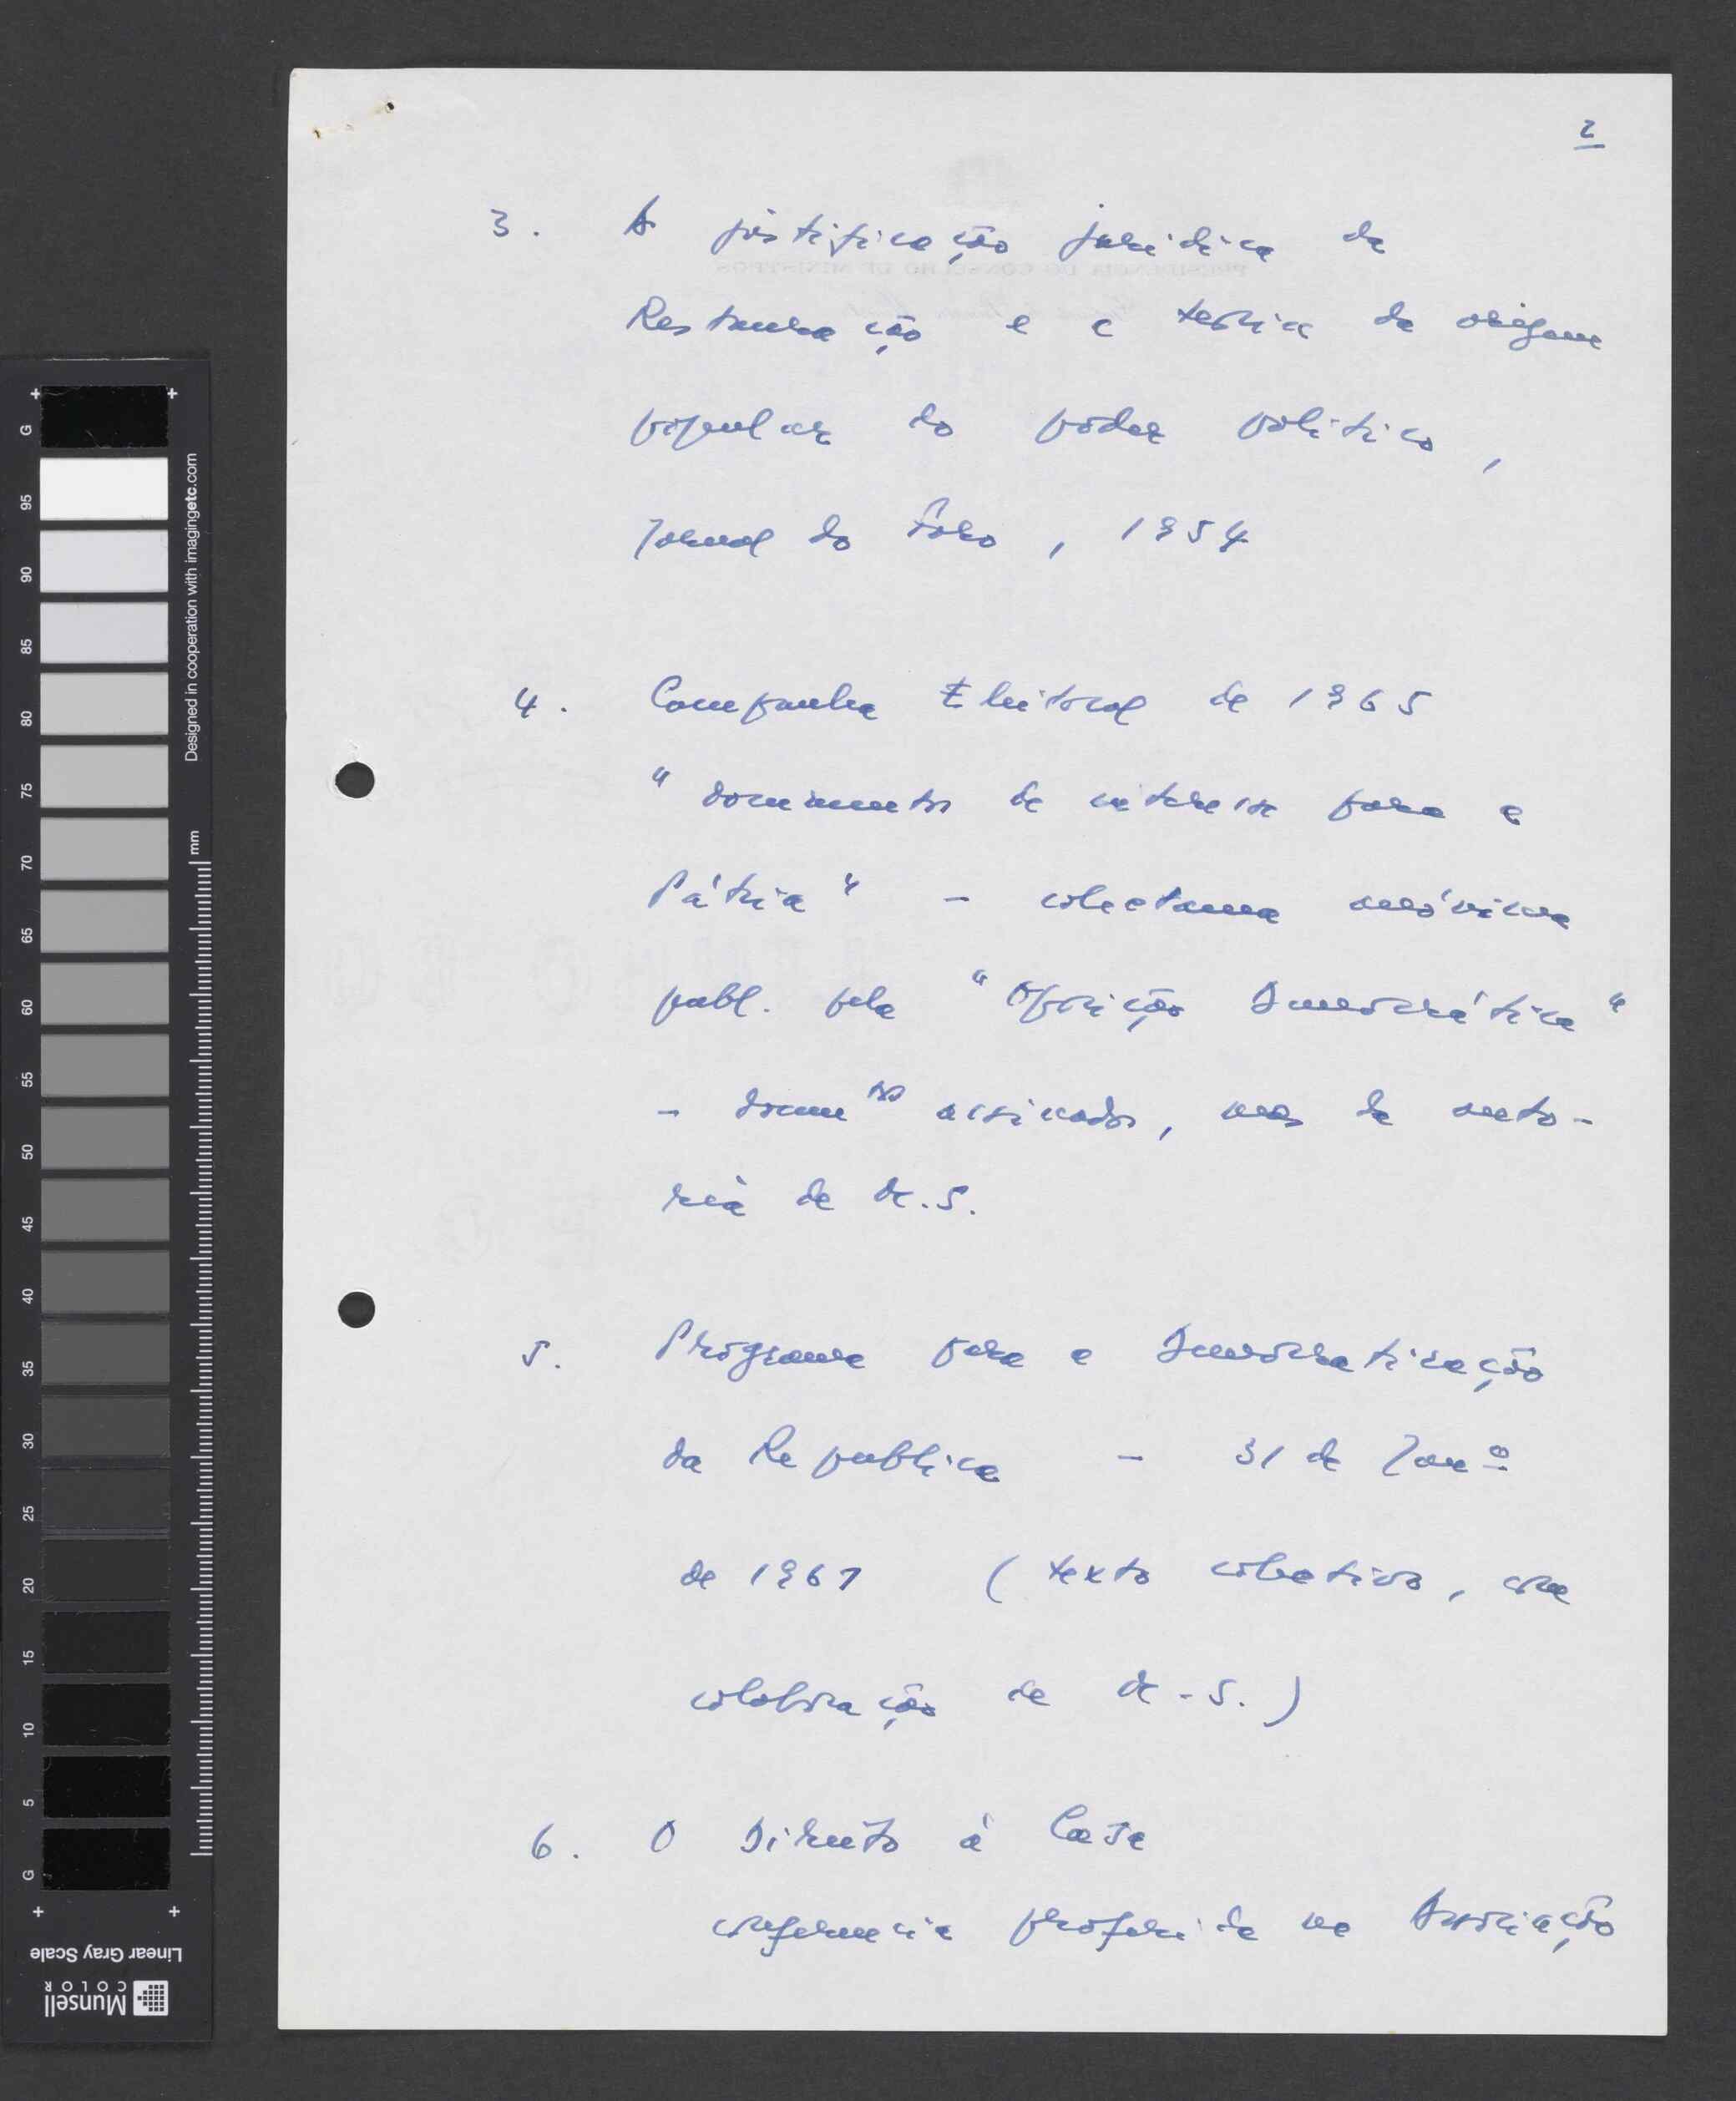 2
3. A justificação juridica da
Restauração e a teoria da origem
popular do poder politico,
Jornal do Foro, 1954
4. Campanha Eleitoral de 1965
"documentos de interesse para a
Pátria" - colectanea anónima
publ. pela "Oposição Democrática"
- docum tos assinados, mas de auto-
ria de M.S.
5. Programa para a Democratização
da Republica - 31 de Janº
de 1961 (texto colectivo, com
colaboração de M.S.)
6. O Direito à Casa
conferencia proferida na Associação
G 95 90 85 80 75 70 65 60 55 50 45 40 35 30 25 20 15 10 5 G
Designed in cooperation with imagingetc.com
mm
Linear Gray Scale
Munsell
COLOR
PRESIDÊNCIA DO CONSELHO DE MINISTROS